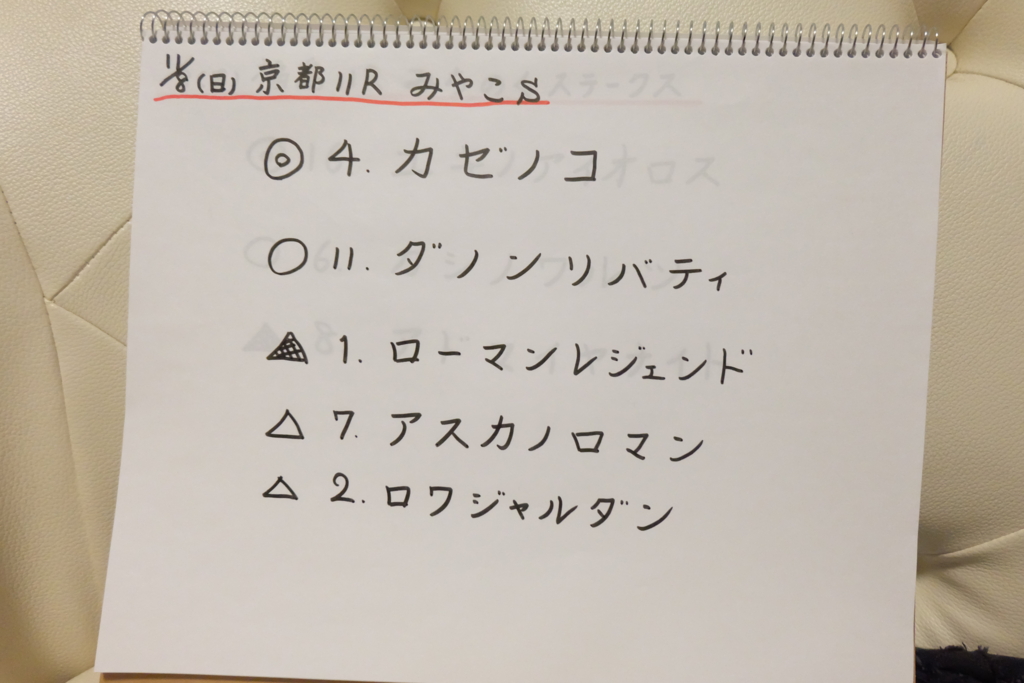 11/8(日) 京都11R みやこS
◎ 4. カゼノコ
○ 11. ダノンリバティ
▲ 1. ローマンレジェンド
△ 7. アスカノロマン
△ 2. ロワジャルダン